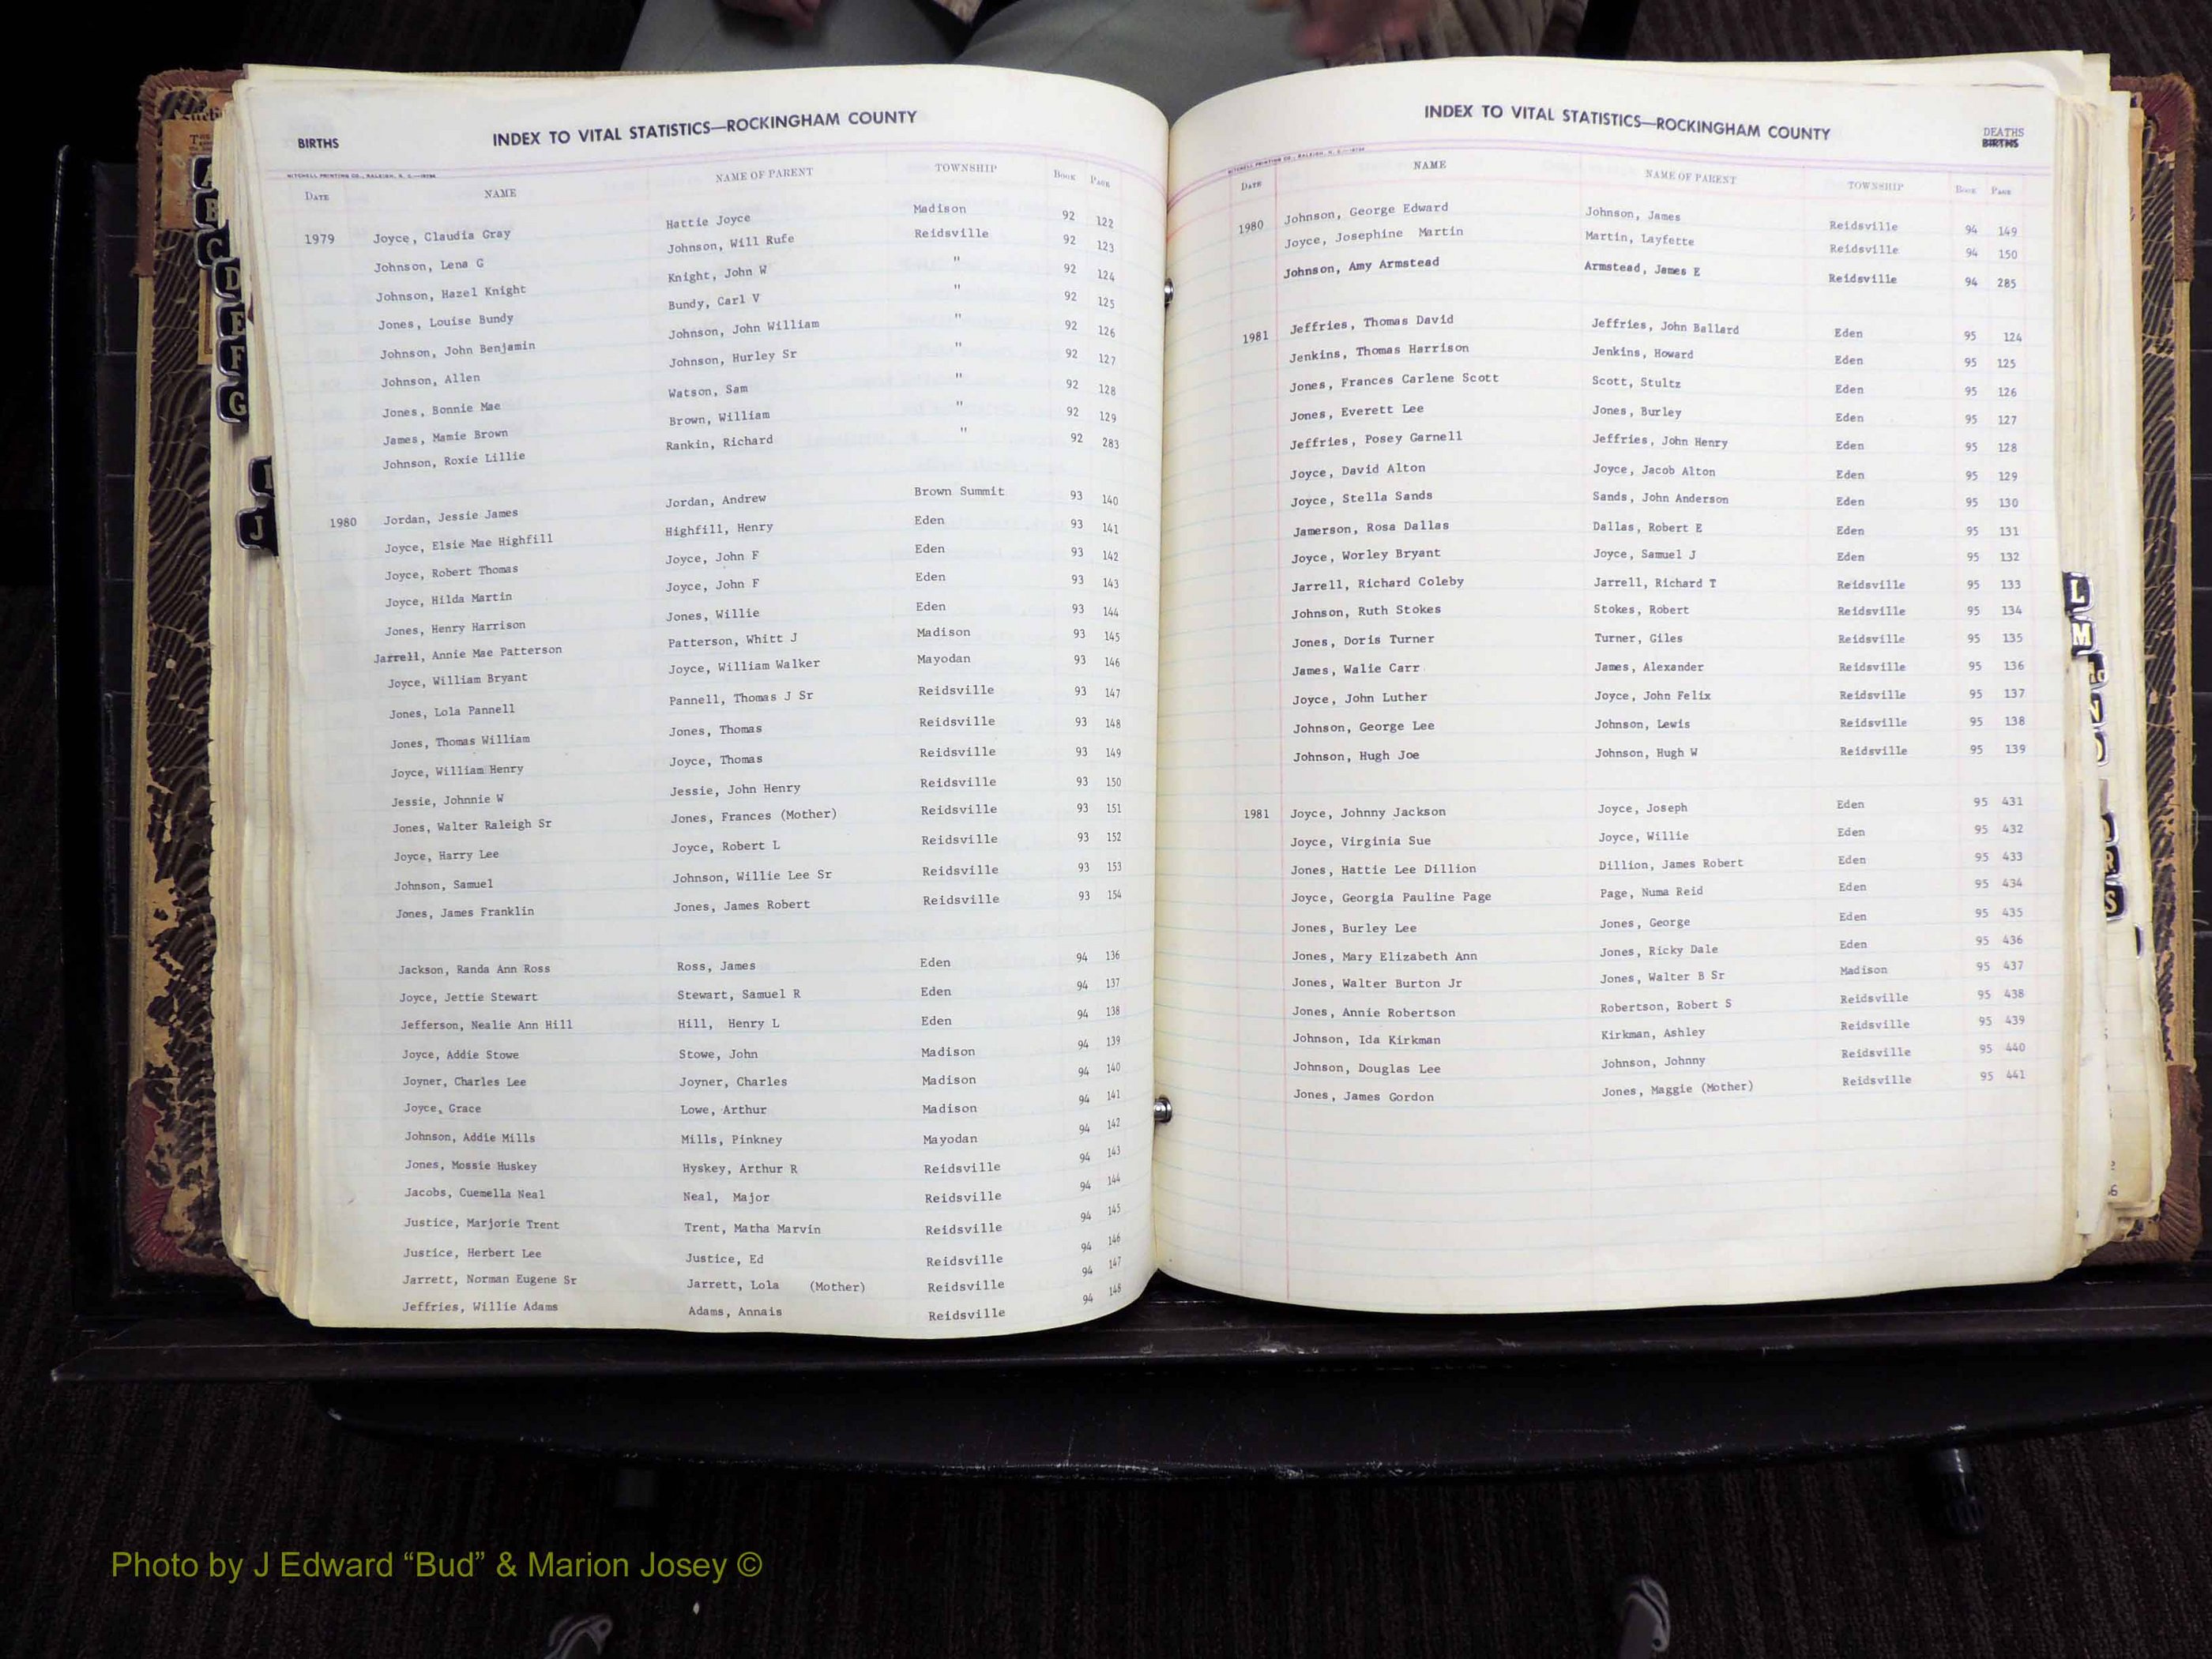 BIRTHS
INDEX TO VITAL STATISTICS—ROCKINGHAM COUNTY
MITCHELL PRINTING CO., RALEIGH, N. C.
DATE NAME NAME OF PARENT TOWNSHIP BOOK PAGE
1979 Joyce, Claudia Gray Hattie Joyce Madison 92 122
Johnson, Lena G Johnson, Will Rufe Reidsville 92 123
Johnson, Hazel Knight Knight, John W " 92 124
Jones, Louise Bundy Bundy, Carl V " 92 125
Johnson, John Benjamin Johnson, John William " 92 126
Johnson, Allen Johnson, Hurley Sr " 92 127
Jones, Bonnie Mae Watson, Sam " 92 128
James, Mamie Brown Brown, William " 92 129
Johnson, Roxie Lillie Rankin, Richard " 92 283
1980 Jordan, Jessie James Jordan, Andrew Brown Summit 93 140
Joyce, Elsie Mae Highfill Highfill, Henry Eden 93 141
Joyce, Robert Thomas Joyce, John F Eden 93 142
Joyce, Hilda Martin Joyce, John F Eden 93 143
Jones, Henry Harrison Jones, Willie Eden 93 144
Jarrell, Annie Mae Patterson Patterson, Whitt J Madison 93 145
Joyce, William Bryant Joyce, William Walker Mayodan 93 146
Jones, Lola Pannell Pannell, Thomas J Sr Reidsville 93 147
Jones, Thomas William Jones, Thomas Reidsville 93 148
Joyce, William Henry Joyce, Thomas Reidsville 93 149
Jessie, Johnnie W Jessie, John Henry Reidsville 93 150
Jones, Walter Raleigh Sr Jones, Frances (Mother) Reidsville 93 151
Joyce, Harry Lee Joyce, Robert L Reidsville 93 152
Johnson, Samuel Johnson, Willie Lee Sr Reidsville 93 153
Jones, James Franklin Jones, James Robert Reidsville 93 154
Jackson, Randa Ann Ross Ross, James Eden 94 136
Joyce, Jettie Stewart Stewart, Samuel R Eden 94 137
Jefferson, Nealie Ann Hill Hill, Henry L Eden 94 138
Joyce, Addie Stowe Stowe, John Madison 94 139
Joyner, Charles Lee Joyner, Charles Madison 94 140
Joyce, Grace Lowe, Arthur Madison 94 141
Johnson, Addie Mills Mills, Pinkney Mayodan 94 142
Jones, Mossie Huskey Hyskey, Arthur R Reidsville 94 143
Jacobs, Cuemella Neal Neal, Major Reidsville 94 144
Justice, Marjorie Trent Trent, Matha Marvin Reidsville 94 145
Justice, Herbert Lee Justice, Ed Reidsville 94 146
Jarrett, Norman Eugene Sr Jarrett, Lola (Mother) Reidsville 94 147
Jeffries, Willie Adams Adams, Annais Reidsville 94 148
INDEX TO VITAL STATISTICS—ROCKINGHAM COUNTY
DEATHS
BIRTHS
MITCHELL PRINTING CO., RALEIGH, N. C.
DATE NAME NAME OF PARENT TOWNSHIP BOOK PAGE
1980 Johnson, George Edward Johnson, James Reidsville 94 149
Joyce, Josephine Martin Martin, Layfette Reidsville 94 150
Johnson, Amy Armstead Armstead, James E Reidsville 94 285
1981 Jeffries, Thomas David Jeffries, John Ballard Eden 95 124
Jenkins, Thomas Harrison Jenkins, Howard Eden 95 125
Jones, Frances Carlene Scott Scott, Stultz Eden 95 126
Jones, Everett Lee Jones, Burley Eden 95 127
Jeffries, Posey Garnell Jeffries, John Henry Eden 95 128
Joyce, David Alton Joyce, Jacob Alton Eden 95 129
Joyce, Stella Sands Sands, John Anderson Eden 95 130
Jamerson, Rosa Dallas Dallas, Robert E Eden 95 131
Joyce, Worley Bryant Joyce, Samuel J Eden 95 132
Jarrell, Richard Coleby Jarrell, Richard T Reidsville 95 133
Johnson, Ruth Stokes Stokes, Robert Reidsville 95 134
Jones, Doris Turner Turner, Giles Reidsville 95 135
James, Walie Carr James, Alexander Reidsville 95 136
Joyce, John Luther Joyce, John Felix Reidsville 95 137
Johnson, George Lee Johnson, Lewis Reidsville 95 138
Johnson, Hugh Joe Johnson, Hugh W Reidsville 95 139
1981 Joyce, Johnny Jackson Joyce, Joseph Eden 95 431
Joyce, Virginia Sue Joyce, Willie Eden 95 432
Jones, Hattie Lee Dillion Dillion, James Robert Eden 95 433
Joyce, Georgia Pauline Page Page, Numa Reid Eden 95 434
Jones, Burley Lee Jones, George Eden 95 435
Jones, Mary Elizabeth Ann Jones, Ricky Dale Eden 95 436
Jones, Walter Burton Jr Jones, Walter B Sr Madison 95 437
Jones, Annie Robertson Robertson, Robert S Reidsville 95 438
Johnson, Ida Kirkman Kirkman, Ashley Reidsville 95 439
Johnson, Douglas Lee Johnson, Johnny Reidsville 95 440
Jones, James Gordon Jones, Maggie (Mother) Reidsville 95 441
A
B
C
D
E
F
G
J
L
M
N
R
S
Photo by J Edward “Bud” & Marion Josey ©